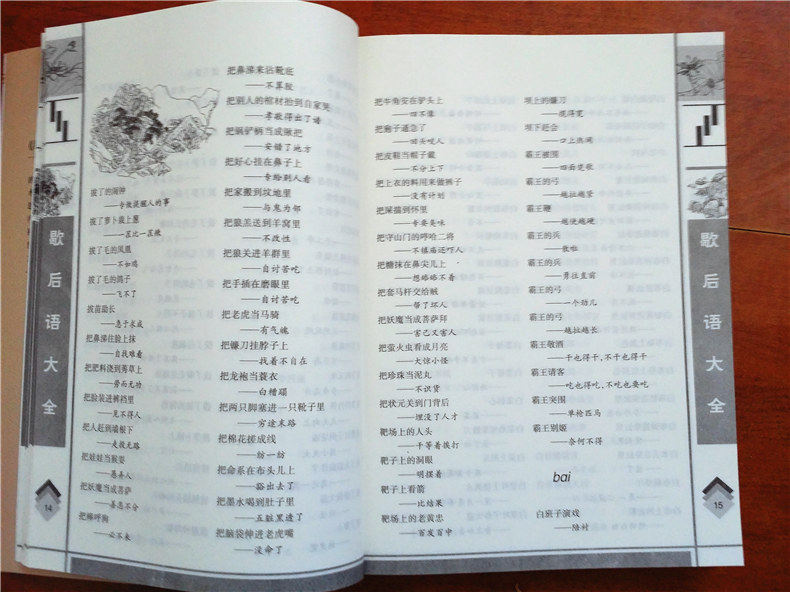 歇后语大全
拔了的闹钟
——专做提醒人的事
拔了萝卜栽上葱
——一茬比一茬辣
拔了毛的凤凰
——不如鸡
拔了毛的鸽子
——飞不了
拔苗助长
——急于求成
把鼻涕往脸上抹
——自找难看
把肥料浇到莠草上
——劳而无功
把脸装进裤裆里
——见不得人
把人赶到墙根下
——走投无路
把娃娃当猴耍
——愚弄人
把妖魔当成菩萨
——善恶不分
把棒呼狗
——必不来
14
把鼻涕来沾靴底
——不算殷
把别人的棺材抬到自家哭
——孝敬得出了谱
把锅铲柄当成锹把
——安错了地方
把好心挂在鼻子上
——专给别人看
把家搬到坟地里
——与鬼为邻
把狼羔送到羊窝里
——不改性
把狼关进羊群里
——自讨苦吃
把手插在磨眼里
——自讨苦吃
把老虎当马骑
——有气魄
把镰刀挂脖子上
——找着不自在
把龙袍当蓑衣
——白糟蹋
把两只脚塞进一只靴子里
——穷途末路
把棉花搓成线
——纺一纺
把命系在布头儿上
——豁出去了
把墨水喝到肚子里
——五脏黑透了
把脑袋伸进老虎嘴
——没命了
把牛角安在驴头上
——四不像
把狍子逼急了
——回头咬人
把皮鞋当帽子戴
——不分上下
把上衣的料用来做裤子
——没有计划
把屎撞到怀里
——专要臭味
把守山门的哼哈二将
——不镇庙还吓人
把糖抹在鼻尖儿上
——想舔舔不着
把套马杆交给贼
——帮了坏人
把妖魔当成菩萨拜
——害己又害人
把萤火虫看成月亮
——大惊小怪
把珍珠当泥丸
——不识货
把状元关到门背后
——埋没了人才
靶场上的人头
——干等着挨打
靶子上的洞眼
——明摆着
靶子上看箭
——比结果
靶场上的老黄忠
——百发百中
坝上的镰刀
——挺得宽
坝下赶会
——口上热闹
霸王被围
——四面楚歌
霸王的弓
——越拉越紧
霸王鞭
——越使越硬
霸王的兵
——散啦
霸王的兵
——勇往直前
霸王的弓
——一个劲儿
霸王的弓
——越拉越长
霸王敬酒
——干也得干,不干也得干
霸王请客
——吃也得吃,不吃也要吃
霸王突围
——单枪匹马
霸王别姬
——奈何不得
bai
白班子演戏
——陪衬
歇后语大全
15